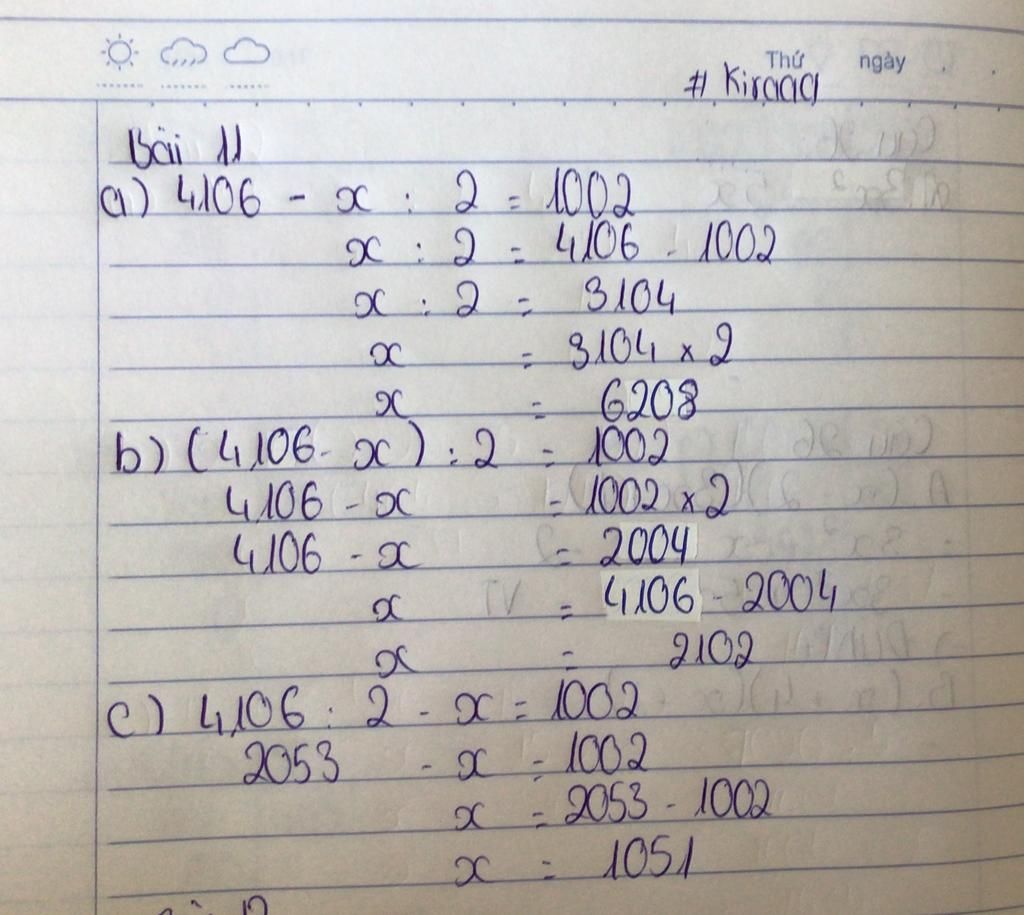 Thứ ngày
# Kiraaa
Bài 11
a) 4106 - x : 2 = 1002
x : 2 = 4106 - 1002
x : 2 = 3104
x = 3104 x 2
x = 6208
b) (4106 - x) : 2 = 1002
4106 - x = 1002 x 2
4106 - x = 2004
x = 4106 - 2004
x = 2102
c) 4106 : 2 - x = 1002
2053 - x = 1002
x = 2053 - 1002
x = 1051